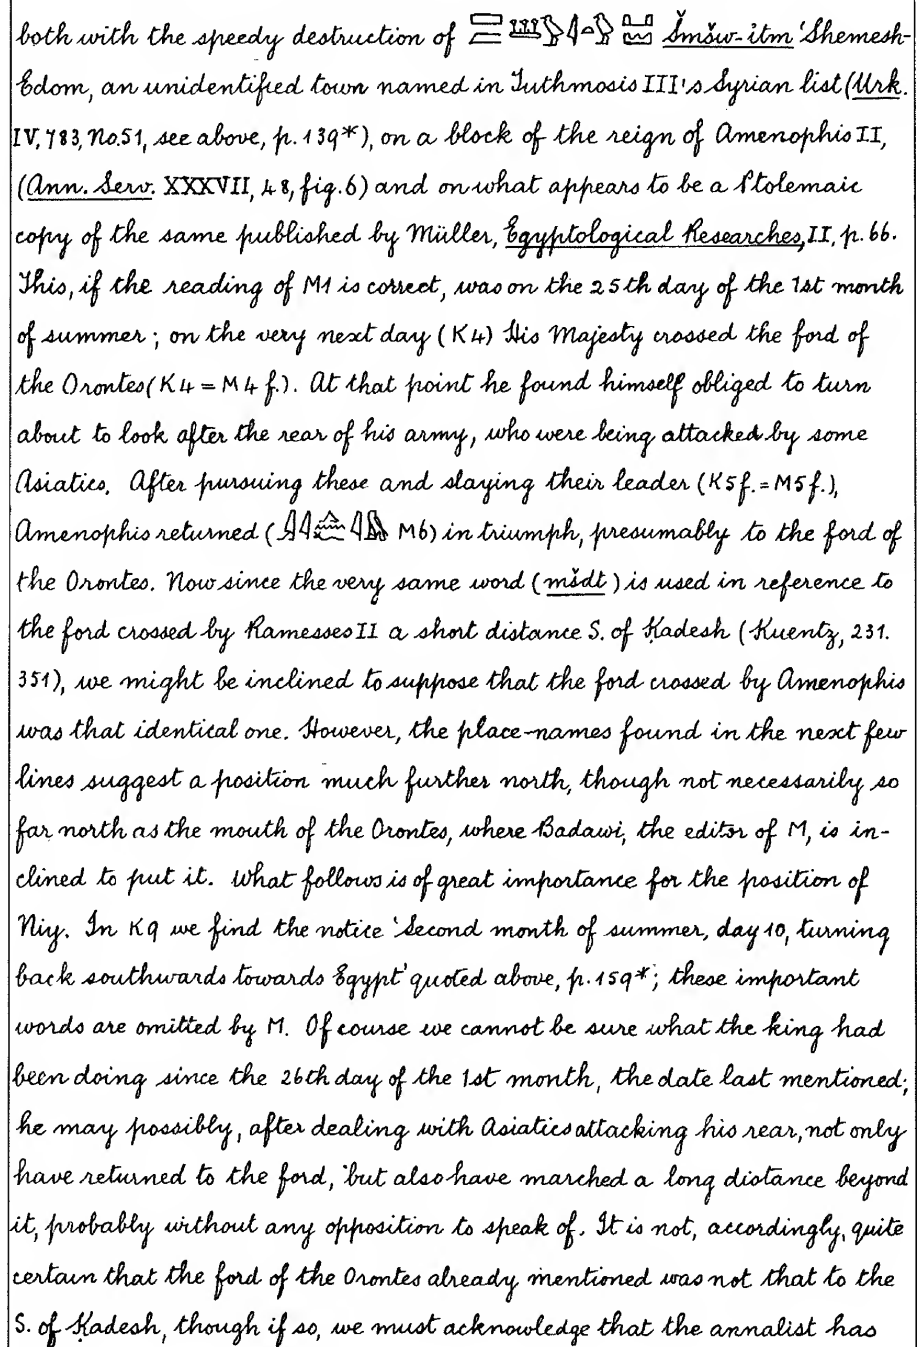 both with the speedy destruction of Šmšw-ı͗tm 'Shemesh-
Edom, an unidentified town named in Tuthmosis III's Syrian list (Urk.
IV, 783, No.51, see above, p. 139*), on a block of the reign of Amenophis II,
(Ann. Serv. XXXVII, 48, fig.6) and on what appears to be a Ptolemaic
copy of the same published by Müller, Egyptological Researches, II, p. 66.
This, if the reading of M1 is correct, was on the 25th day of the 1st month
of summer; on the very next day (K4) His Majesty crossed the ford of
the Orontes (K4 = M4 f.). At that point he found himself obliged to turn
about to look after the rear of his army, who were being attacked by some
Asiatics. After pursuing these and slaying their leader (K5f. = M5f.),
Amenophis returned ( M6) in triumph, presumably to the ford of
the Orontes. Now since the very same word (mšdt) is used in reference to
the ford crossed by Ramesses II a short distance S. of Ḳadesh (Kuentz, 231.
351), we might be inclined to suppose that the ford crossed by Amenophis
was that identical one. However, the place-names found in the next few
lines suggest a position much further north, though not necessarily so
far north as the mouth of the Orontes, where Badawi, the editor of M, is in-
clined to put it. What follows is of great importance for the position of
Niy. In K9 we find the notice 'Second month of summer, day 10, turning
back southwards towards Egypt' quoted above, p. 159*; these important
words are omitted by M. Of course we cannot be sure what the king had
been doing since the 26th day of the 1st month, the date last mentioned;
he may possibly, after dealing with Asiatics attacking his rear, not only
have returned to the ford, but also have marched a long distance beyond
it, probably without any opposition to speak of. It is not, accordingly, quite
certain that the ford of the Orontes already mentioned was not that to the
S. of Ḳadesh, though if so, we must acknowledge that the annalist has